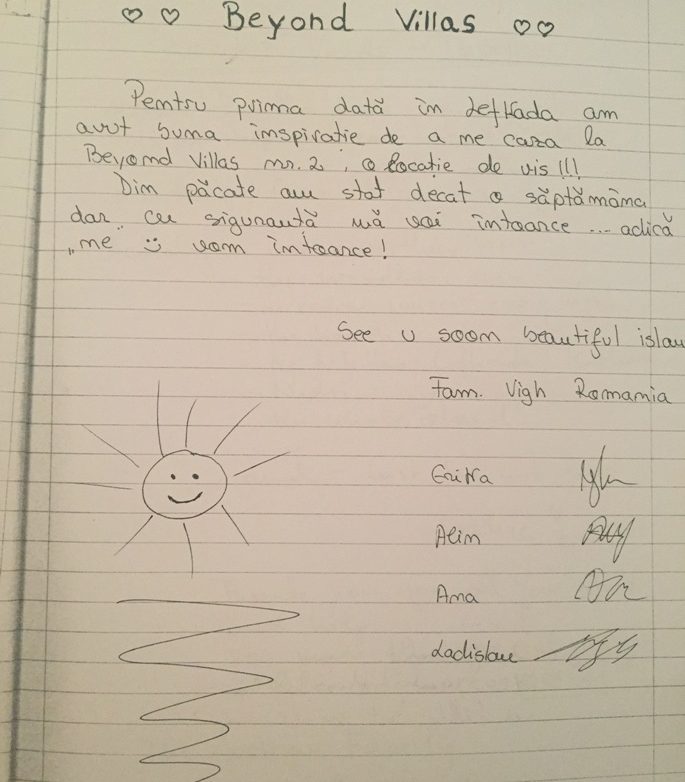 ♡ ♡ Beyond Villas ♡♡
Pentru prima dată în Lefkada am
avut buna inspirație de a me caza la
Beyond Villas nr. 2, o locație de vis!!!
Din păcate am stat decat o săptămâna
dar cu siguranță mă voi întoarce ... adică
„ne" :) vom întoarce!
See u soon beautiful islan
Fam. Vigh Romania
Erika
Alin
Ana
Ladislau